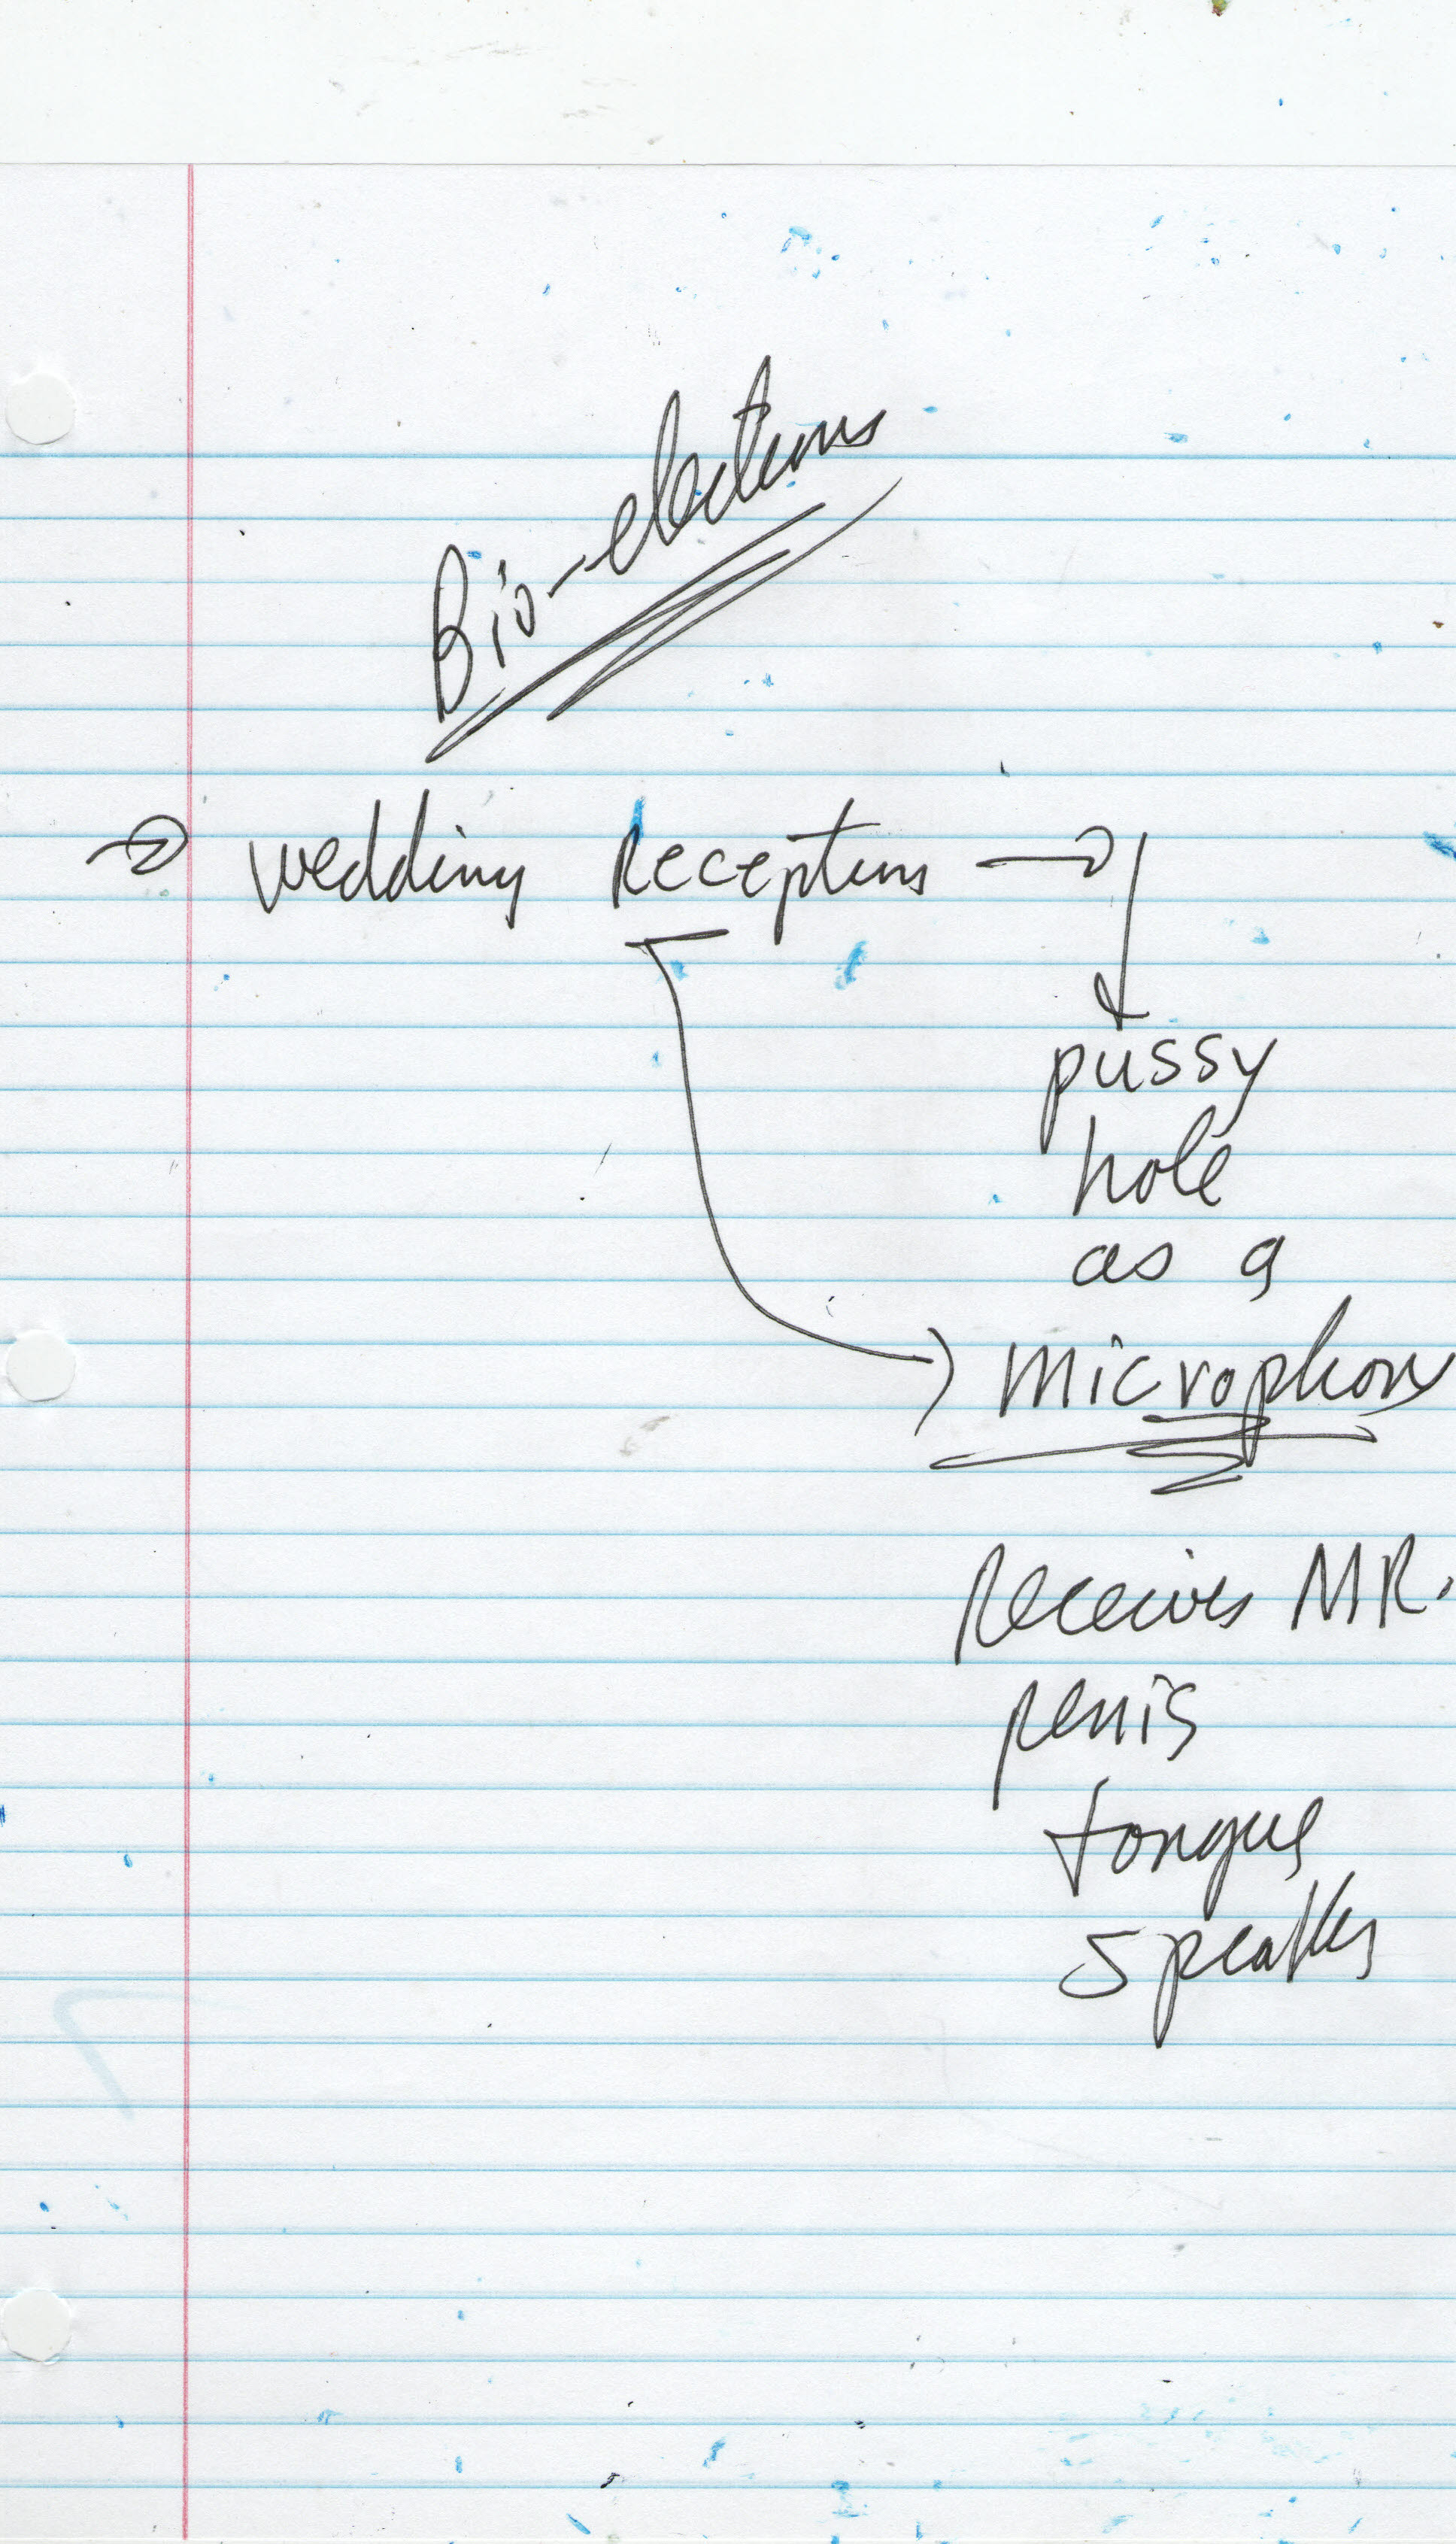 Bio-elections
wedding Receptions
pussy
hole
as a
microphone
Receives MR.
penis
tongue
speaks